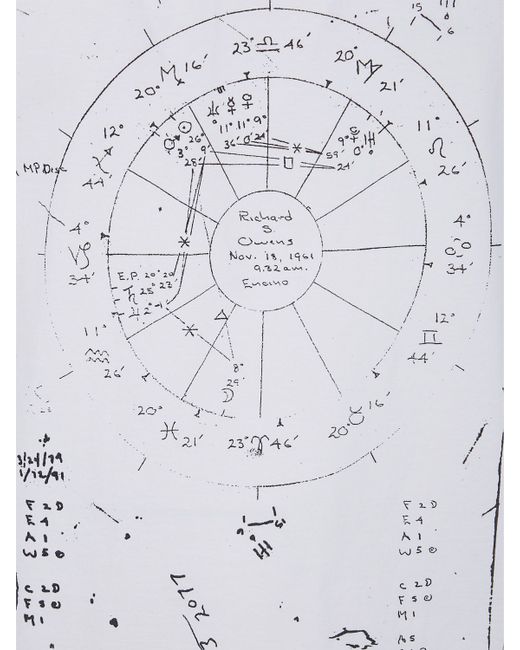 23° ♎ 46'
20° ♏ 16'
20° ♍ 21'
12° ♐ 44'
11° ♌ 26'
MP Disc
4° ♑ 34'
4° ♋ 34'
♅ ☿ ♀
11° 11° 9°
36' 0' 24'
☉
26°
3° 9'
28'
9° 0°
59' 24'
Richard
S.
Owens
Nov. 18, 1961
9:32 a.m.
Encino
E.P. 20° 20'
♄ 25° 23'
♃ 2°
11° ♒ 26'
12° ♊ 44'
8°
29'
☽
20° ♓ 21'
23° ♈ 46'
20° ♉ 16'
3/24/79
1/12/91
F 2D
E 4
A 1
W 5 ⊙
C 2D
F 5 ⊙
M 1
F 2D
E 4
A 1
W 5 ⊙
C 2D
F 5 ⊙
M 1
A 5